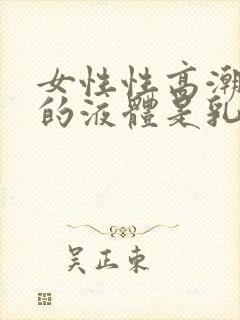 女性性高潮
的液體是乳
吴正东